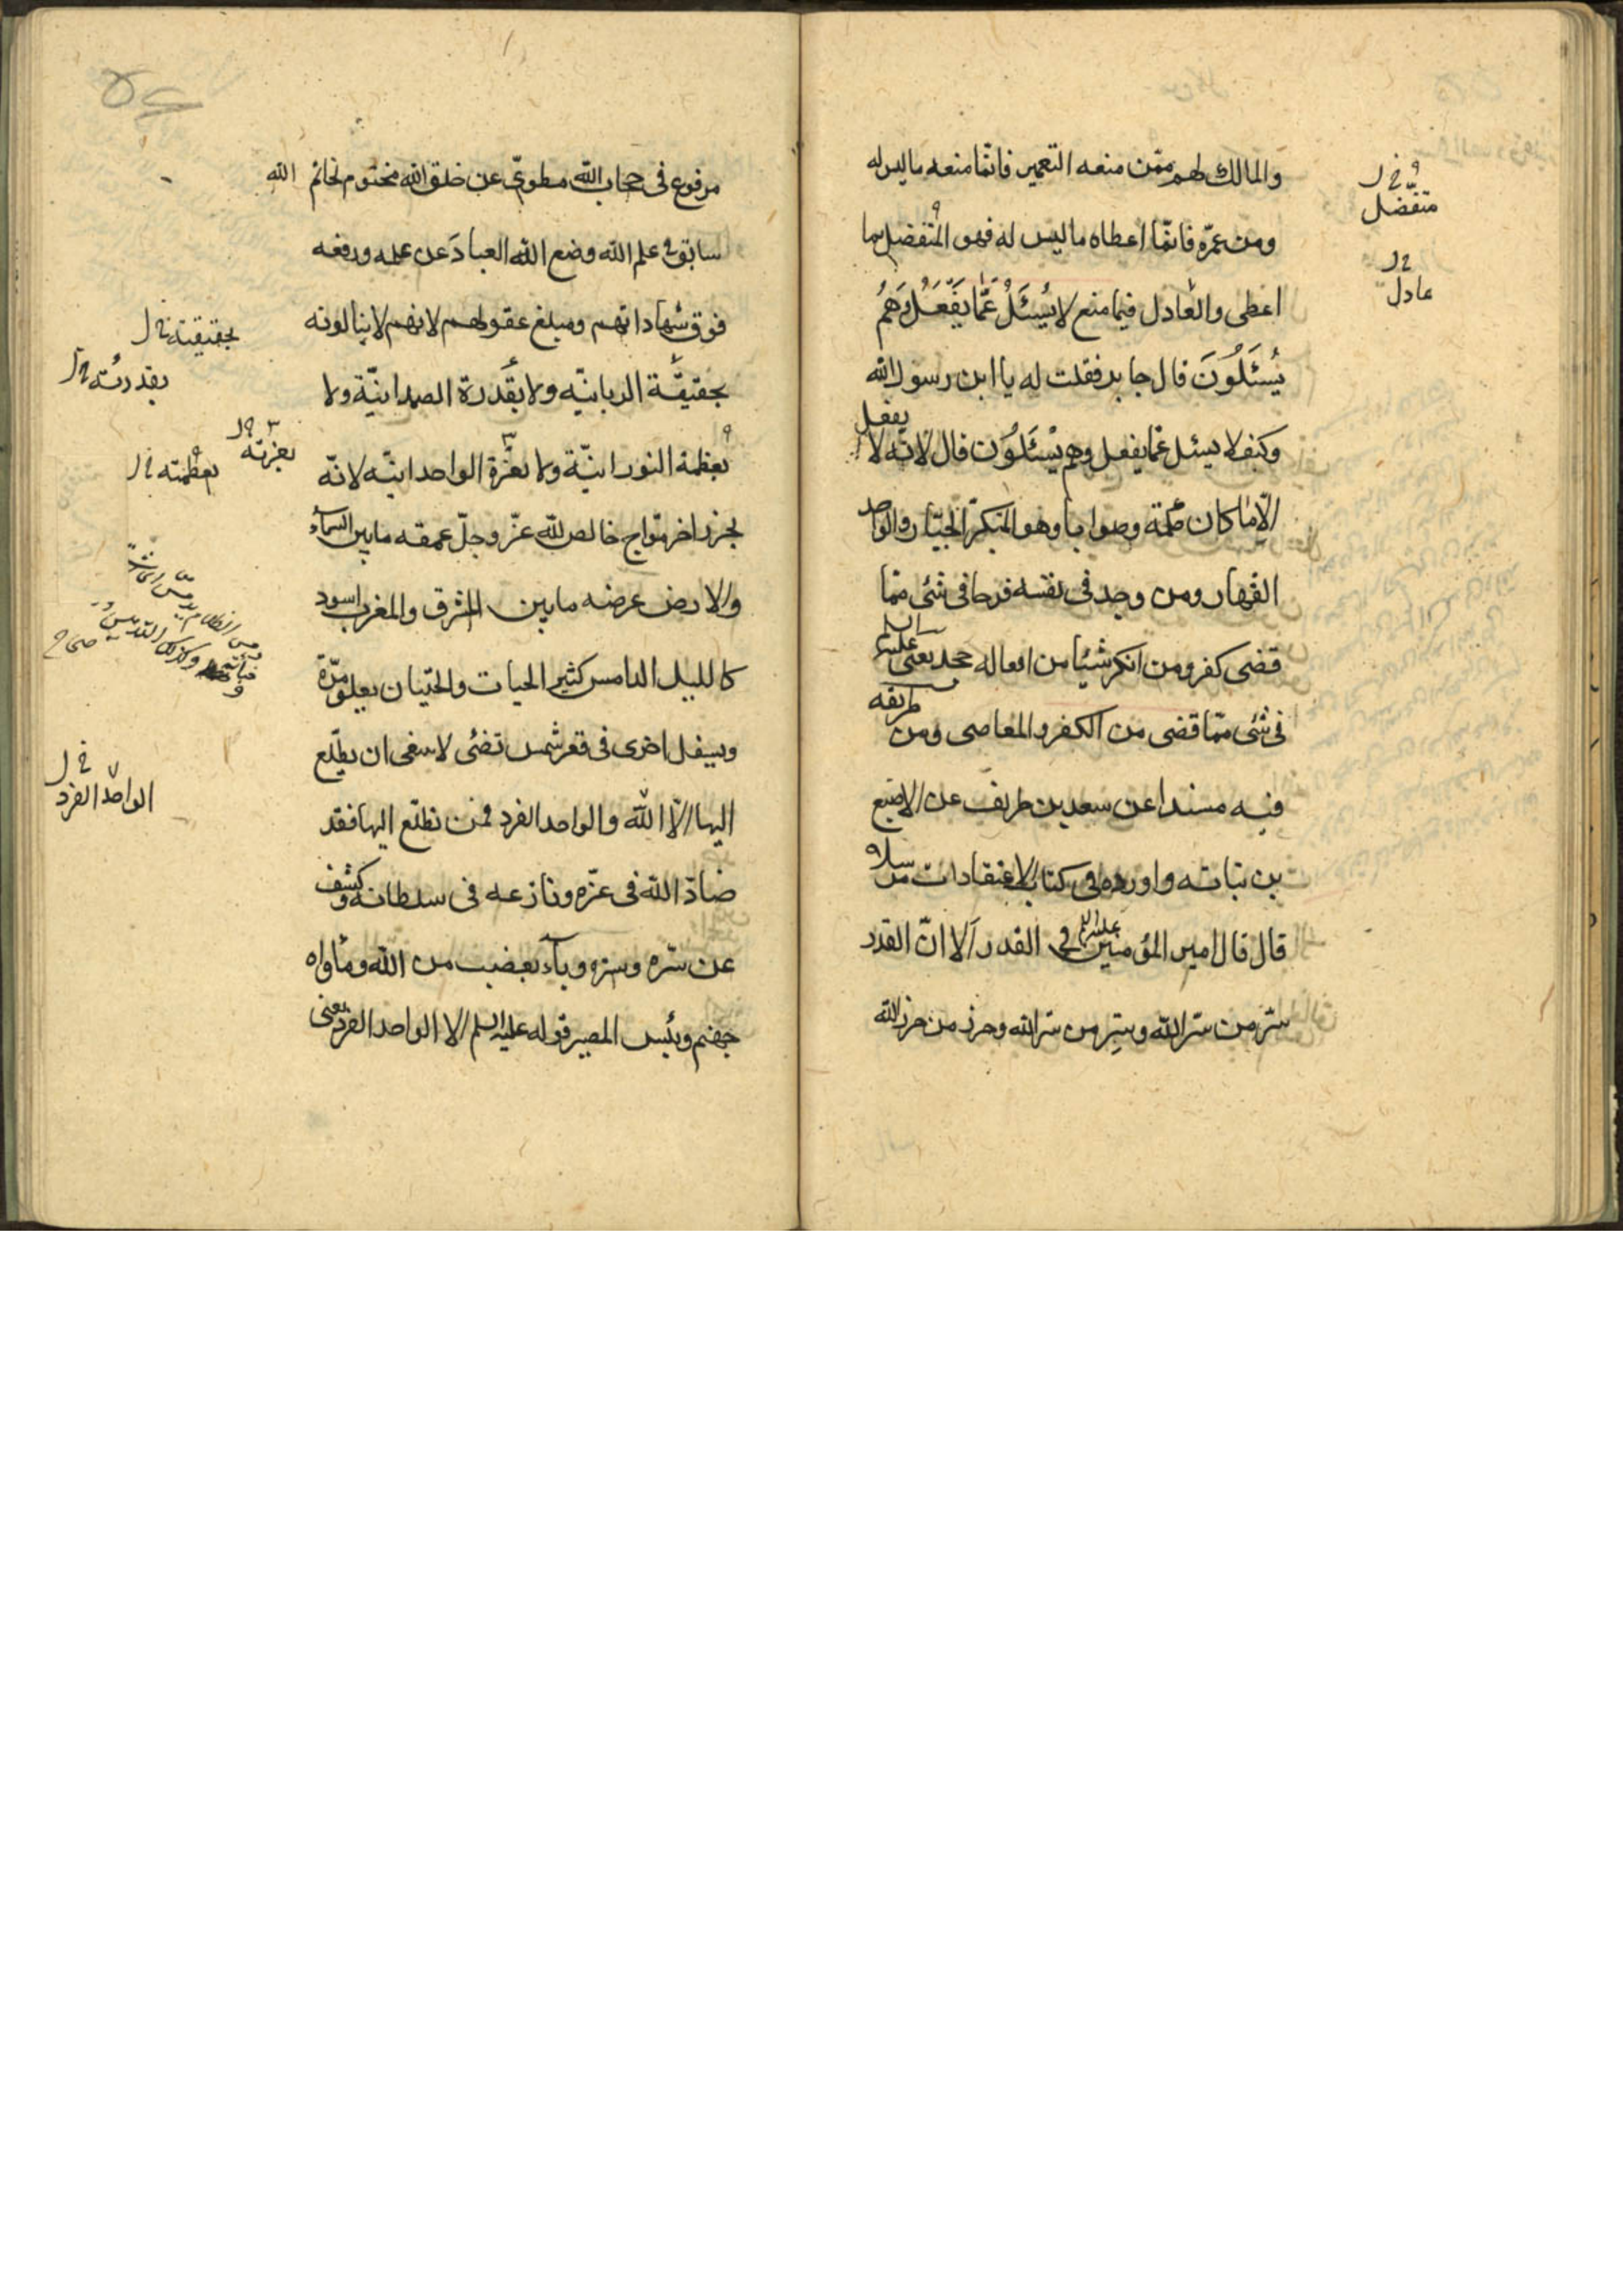 والمالك لهم ممّن منعه التعمير فانّما منعه ما ليس له
ومن عمّره فانّما اعطاه ما ليس له فهو المتفضل بما
اعطى والعادل فيما منع لا يُسْئَلُ عَمّا يَفْعَلُ وَهُمْ
يُسْئَلُونَ قال جابر فقلت له يا ابن رسول الله
وكيف لا يسئل عمّا يفعل وهم يُسْئَلُون قال لانّه لا يفعل
الّا ما كان حكمة وصوابا وهو المتكبّر الجبّار والواحد
القهّار ومن وجد في نفسه فرحا في شئ ممّا
قضى كفر ومن انكر شيئا من افعاله جحد يعنى عليه السلم
في شئ ممّا قضى من الكفر والمعاصى ومن طريقه
فيه مسندا عن سعد بن طريف عن الاصبغ
بن نباته واورده في كتاب الاعتقادات مرسلا
قال قال امير المؤمنين عليه السلم في القدر ألا انّ القدر
سرّ من سرّ الله وستر من ستر الله وحرز من حرز الله
متفضّل
عادل
مرفوع في حجاب الله مطوىّ عن خلق الله مختوم بخاتم الله
سابق في علم الله وضع الله العباد عن علمه ورفعه
فوق شهاداتهم ومبلغ عقولهم لانهم لا ينالونه
بحقيقة الربانيّه ولا بقدرة الصمدانيّة ولا
بعظمة النورانيّة ولا بعزّة الواحدانيّه لانّه
بحر زاخر موّاج خالص لله عزّ وجلّ عمقه ما بين السمآء
والارض عرضه ما بين المشرق والمغرب اسود
كالليل الدامس كثير الحيات والحيتان يعلو مرّة
ويسفل اخرى في قعر شمس تضئ لا ينبغى ان يطّلع
اليها الّا الله والواحد الفرد فمن تطلّع اليها فقد
ضادّ الله في عزّه ونازعه في سلطانه وكشف
عن سرّه وستره وبآء بغضب من الله ومأواه
جهنم وبئس المصير قوله عليه السلم الا الواحد الفرد يعنى
بحقيقته خ ل
بقدرته خ ل
بعزته خ ل
بعظمته خ ل
الواحد الفرد خ ل